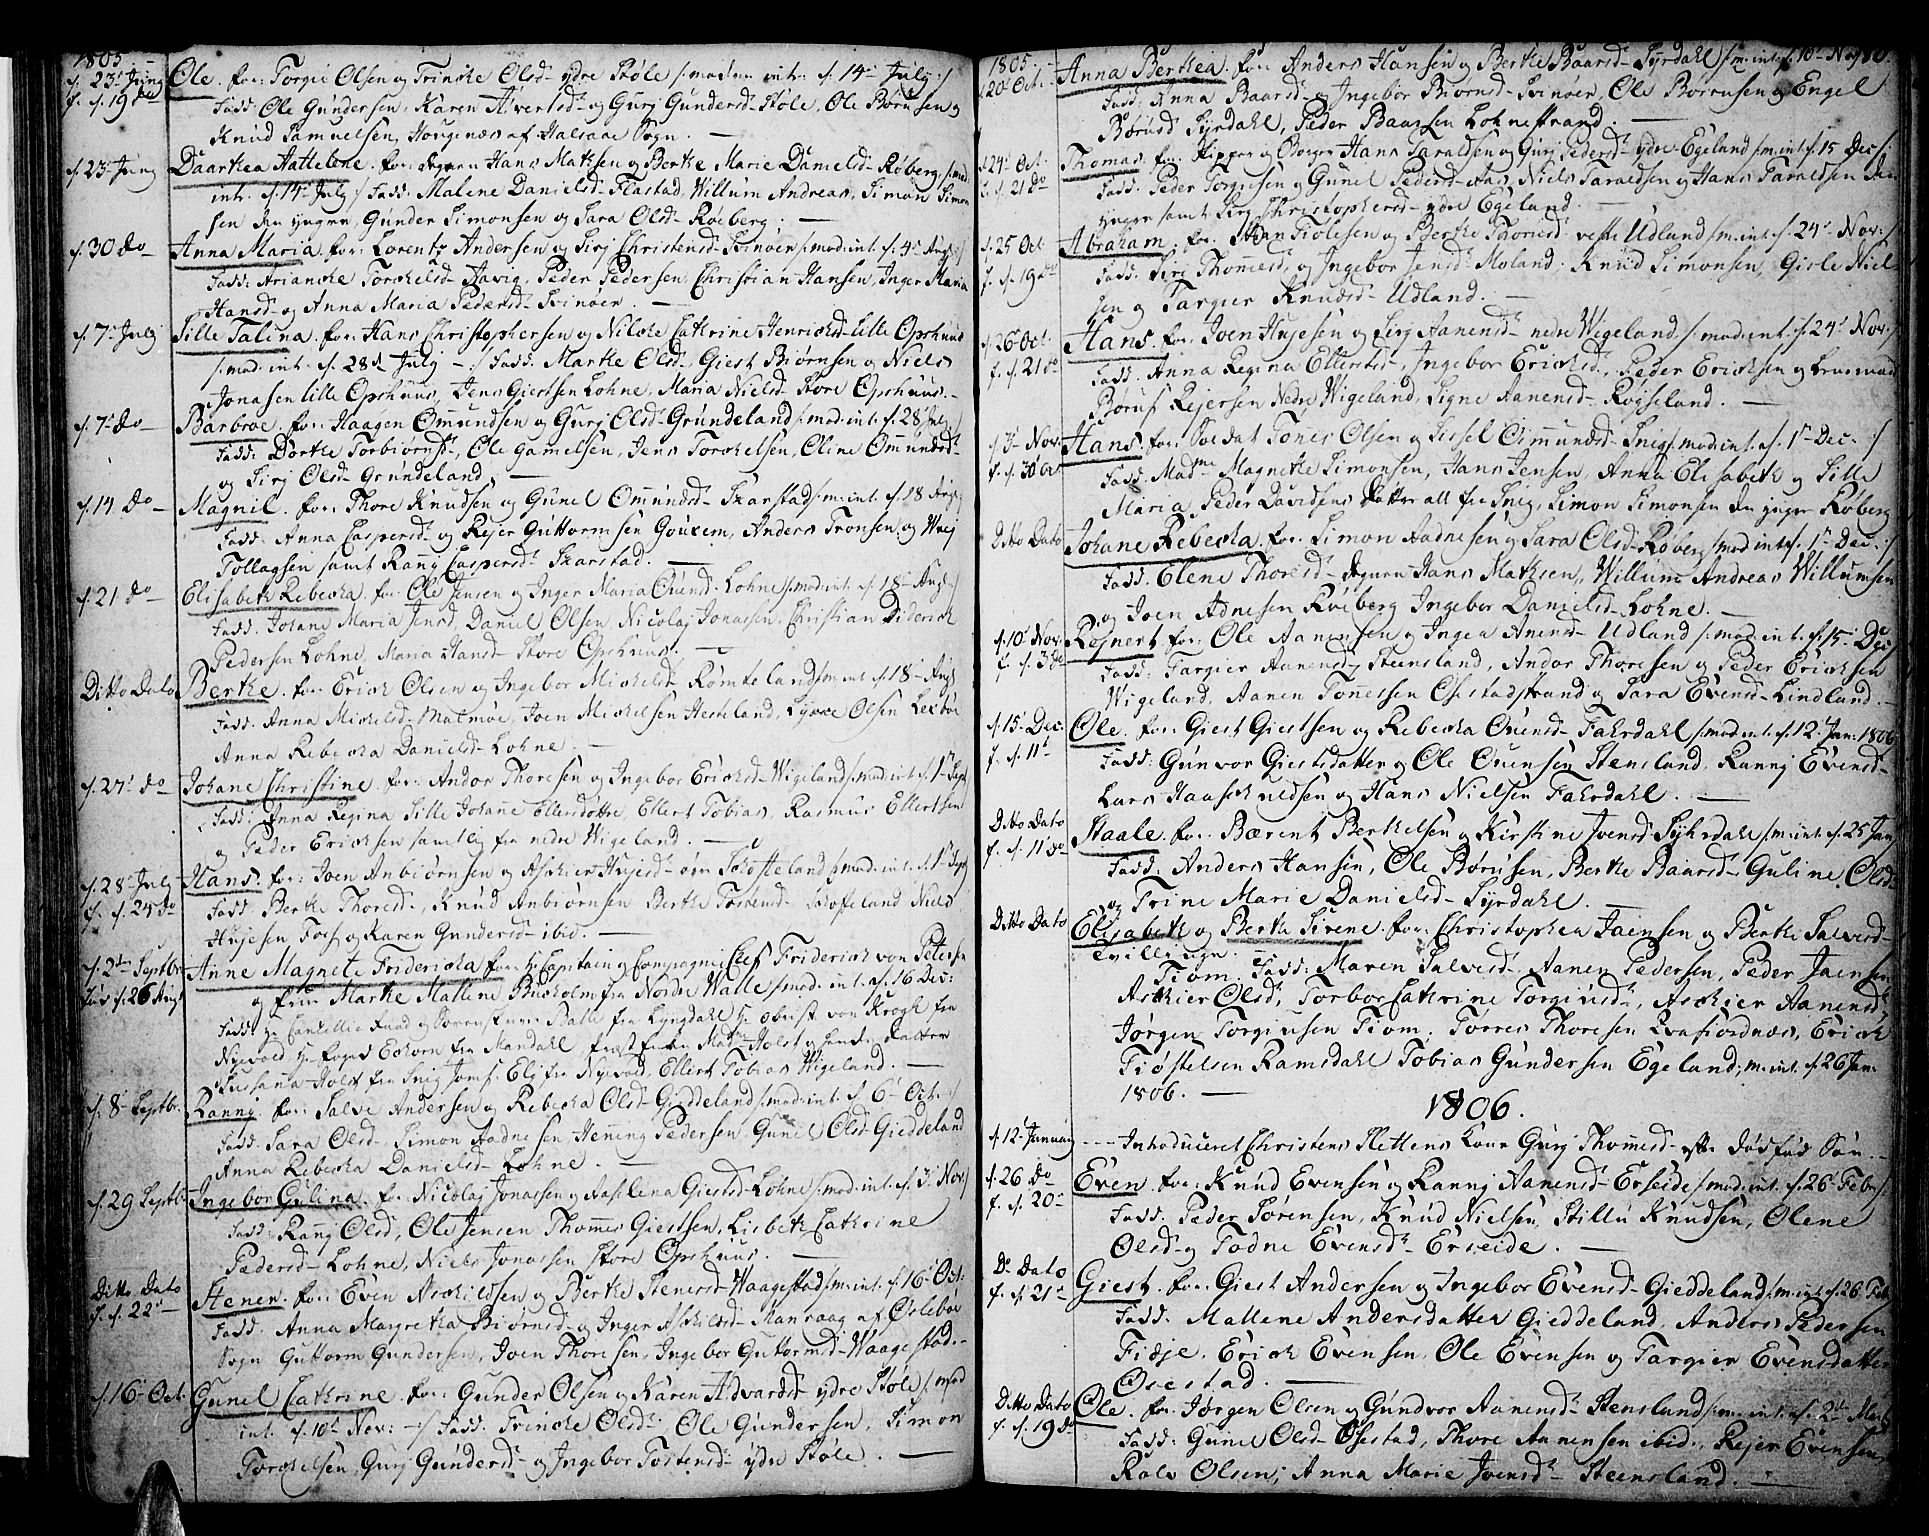 1805.
d. 23d Juny Ole. for: Torgie Olsen og Trinche Olsd. ydre Støle /: mod: int. d. 14d July :/
f. d. 19 do Fadd: Ole Gundersen, Karen Alversd. og Gurj Gundersd. Støle, Ole Børusen og
Knud Samuelsen Hougenæs af Halsaae Sogn.
d. 23 Juny Daarthea Hattelene. for: Hans Mathsen og Berthe Marie Danielsd. Røberg /: mod:
int. d. 14d July :/ Fadd: Malene Danielsd. Flastad, Willum Andreas, Simon Simon
sen den yngre, Gunder Simonsen og Sara Olsd. Roeberg.
d. 30 do Anna Maria. for: Lorentz Andersen og Sirj Christensd. Svinøer /: mod: int. d. 4d Aug :/
Fadd: Arianche Torchelsd. Havig, Peder Pedersen, Christian Hansen, Inger Maria
Hansd. og Anna Maria Pedersd. Svinøer.
d. 7d July Sille Talina. for: Hans Christophersen og Nilche Cathrine Henrichsd. Lille Opshuus
/: mod: int. d. 28d July :/ Fadd: Marthe Olsd. Giest Biørnsen og Niels
Jonasen Lille Opshuus, Jens Giertsen Lohne, Maria Nielsd. Store Opshuus.
d. 7d do Barbroe. for: Haagen Omundsen og Gurj Olsd. Grundeland /: mod: int. d. 28 July
Fadd: Dorthe Torbiørnsd. Ole Gamelsen, Jens Torchelsen, Oline Omundsd.
og Sirj Olsd. Grundeland.
d. 14 do Magnil. for: Thore Knudsen og Gunel Omundsd. Skarstad /: m: int. d. 18 Aug
Fadd: Anna Caspersd. og Rejer Guttormsen Gouxem, Anders Tronsen og
Tollagsen samt Ranj Caspersd. Skarstad.
d. 21 do Elisabeth Rebecka. for: Ole Jensen og Inger Maria Ouensd. Lohne /: mod: int. d. 18d Aug :/
Fadd: Johane Maria Jensd. Daniel Olsen, Nicolaj Jonassen, Christian Diderich
Pedersen Lohne, Maria Hansd. Store Opshuus.
Ditto Dato Berthe. for: Erich Olsen og Ingebor Michelsd. Rømteland /: m: int. d. 18d Aug
Fadd: Anna Michelsd. Malmøe, Joen Michelsen Hesland, Olsen
Anna Rebecka Danielsd. Lohne.
d. 27d do Johane Christine. for: Andor Thoresen og Ingebor Erichsd. Wigeland /: mod: int. d. 1d Sept
Fadd: Anna Regina Sille Johane Ellersdøttre, Ellert Tobias, Rasmus Ellertsen
og Peder Erichsen samtlig fra nedre Wigeland.
d. 28d July Hans. for: Joen Anbiørnsen og Aschier Hujesd. øvre Skofteland /: mod: int. d. 1d Sept
f. d. 24 do Fadd: Berthe Thoresd. Knud Anbiørnsen Berthe Tostensd. Skofteland Niels
Hujesen Foss og Karen Gundersd. ibid.
d. 2den Septbr. Anne Magnete Friderica for: Hr Capitain og Compagnie Chef Friderich von Petersen
fød d. 26 Aug og frue Marthe Mallene Buckholm fra Nordre Walle /: mod: int. d. 16 Dec:
Fadd: Hr Cancellie Raad og Sorenskriver Balle fra Lyngdahl Hr Obrist von Krogh fra
Nyevold Hr Foged Eckorn fra Mandahl Madme Holst og hendes Datter
Susana Holst fra Snig Jomf: Elj fra Nyevold, Ellert Tobias Wigeland.
d. 8 Septbr. Rannj for: Salve Andersen og Rebecka Olsd. Gieddeland /: mod: int. d. 6d Oct. :/
Fadd: Sara Olsd. Simon Aadnesen Henning Pedersen, Gunil Olsd. Gieddeland
Anna Rebecka Danielsd. Lohne.
d. 29 Septbr. Ingebor Gulina. for: Nicolaj Jonassen og Aaslena Giestsd. Lohne /: mod: int. d. 3d Nov :/
Fadd: Ranj Olsd. Ole Jensen Thomes Giestsen, Lisbeth Cathrine
Pedersd. Lohne, Niels Jonassen Store Opshuus.
Ditto Dato Stenen. for: Even Aschildsen og Berthe Stenersd. Waagestad /: m: int. d. 16d Oct:
f. d. 22d Fadd: Anna Margretha Biørnsd. og Inger Aschilsd. Manraag af Øslebøe
Sogn Guttorm Gundersen, Joen Thoresen, Ingebor Guttormsd. Waagestad.
d. 16d Oct. Gunel Cathrine. for: Gunder Olsen og Karen Advardsd. ydre Støle /: mod
int. d. 10d Nov: :/ Fadd: Trinche Olsd. Ole Gundersen, Simon
Torchelsen, Gurj Gundersd. og Ingebor Tostensd. ydre Støle.
1805.
d. 20d Oct. Anna Berthea. for: Anders Hansen og Berthe Baarsd. Syrdahl /: m: int. d. 10d Nov
Fadd: Anna Baarsd. og Ingebor Biørnsd. Svinøer, Ole Børusen og Engel
Børusd. Syrdahl, Peder Baarsen Lohnestrand.
d. 24d Oct. Thomas. for: Skipper og Borger Hans Taraldsen og Gurj Pedersd. ydre Egeland /: m: int. d. 15 Dec :/
f. d. 21 do Fadd: Peder Torgiesen og Gunel Pedersd. Aas, Niels Taraldsen og Hans Taraldsen den
yngre samt Sirj Christophersd. ydre Egeland.
d. 25 Oct Abraham. for: Aan Fiolesen og Berthe Thoresd. vestre Udland /: m: int. d. 24d Nov: :/
f. d. 19 do Fadd: Sirj Thomesd. og Ingebor Jensd. Moland. Knud Simonsen, Gisle Niel
sen og Targier Knudsd. Udland.
d. 26 Oct. Hans. for: Joen Hujesen og Sirj Aanensd. nedre Wigeland /: mod: int. d. 24d Nov :/
f. d. 21 do Fadd: Anna Regina Ellertsd. Ingebor Erichsd. Peder Erichsen og
Børus Rejersen Nedre Wigeland, Signe Aanensd. Røgseland.
d. 3d Nov. Hans. for: Soldat Tønes Olsen og Sissel Omundsd. Snig /: mod: int. d. 1d Dec. :/
f. d. 30 Oct Fadd: Madme Magrethe Simonsen, Hans Jensen, Anna Elisabeth og Sille
Maria Peder Davidsens Døttre all fra Snig, Simon Simonsen den yngre Røberg
Ditto Dato Johane Rebecka. for: Simon Aadnesen og Sara Olsd. Røberg /: mod: int. d. 1d Dec. :/
Fadd: Elene Thoresd. Hans Mathsen, Willum Andreas Willumsen
og Joen Adnesen Røeberg Ingebor Danielsd. Lohne.
d. 10d Nov. Rejnert for: Ole Aanensen og Ingea Anensd. Udland /: mod: int. d. 15d Dec
f. d. 3d do Fadd: Targier Aanensd. Steensland, Andor Thoresen og Peder Erichsen
Wigeland, Aanen Tønnessen Osestadstrand og Sara Evensd. Lindland.
d. 15d Dec. Ole. for: Giest Giestsen og Rebecka Ouensd. Fahrdahl /: mod: int. d. 12d Jan: 1806
f. d. 11d Fadd: Gunvor Giestsdatter og Ole Ouensen Stensland, Rannj Evensd.
Lars Haaschuldsen og Hans Nielsen Fahrdahl.
Ditto Dato Staale. for: Bærent Berthelsen og Kirstine Ivensd. Syhrdahl /: m: int. d. 25 Jan
f. d. 11 do Fadd: Anders Hansen, Ole Børusen, Berthe Baarsd. Guline Olsd.
og Trine Marie Danielsd. Syrdahl.
Ditto Dato Elisabeth og Berthe Sirene. for: Christophen Jainsen og Berthe Salvesd.
Tvillinger. Fiom. Fadd: Maren Salvesd. Aanen Pedersen, Peder Jainsen
Aschier Olsd. Torbor Cathrine Torgiusd. Aschier Aanensd.
Jørgen Torgiusen Fiom, Tørres Thoresen Qvafiordnæs, Erich
Fiøstelsen Ramsdahl Tobias Gundersen Egeland; m: int. d. 26 Jan:
1806.
1806.
d. 12 January Introduceret Christens Slettens Kone Gurj Thomesd. efter dødfød Søn.
d. 26 do Even. for: Knud Evensen og Rannj Aanensd. Erseide /: mod: int. d. 26d Febr :/
f. d. 20d Fadd: Peder Sørensen, Knud Nielsen, Stillu Knudsen, Olene
Olsd. og Todne Evensd. Erseide.
Do Dato Giest. for: Giest Andersen og Ingebor Evensd. Gieddeland /: m: int. d. 26 Feb
f. d. 21d Fadd: Mallene Andersdatter Gieddeland, Anders Pedersen
Fidje, Erich Evensen, Ole Evensen og Targier Evensdatter
Osestad.
Ditto Dato Ole. for: Jørgen Olsen og Gundvor Aanensd. Stensland /: m: int. d. 2d Mart
f. d. 19 do Fadd: Gunel Olsd. Osestad, Thore Aanensen ibid., Rejer Evensen
Rolv Olsen, Anna Marie Ivensd. Steensland.